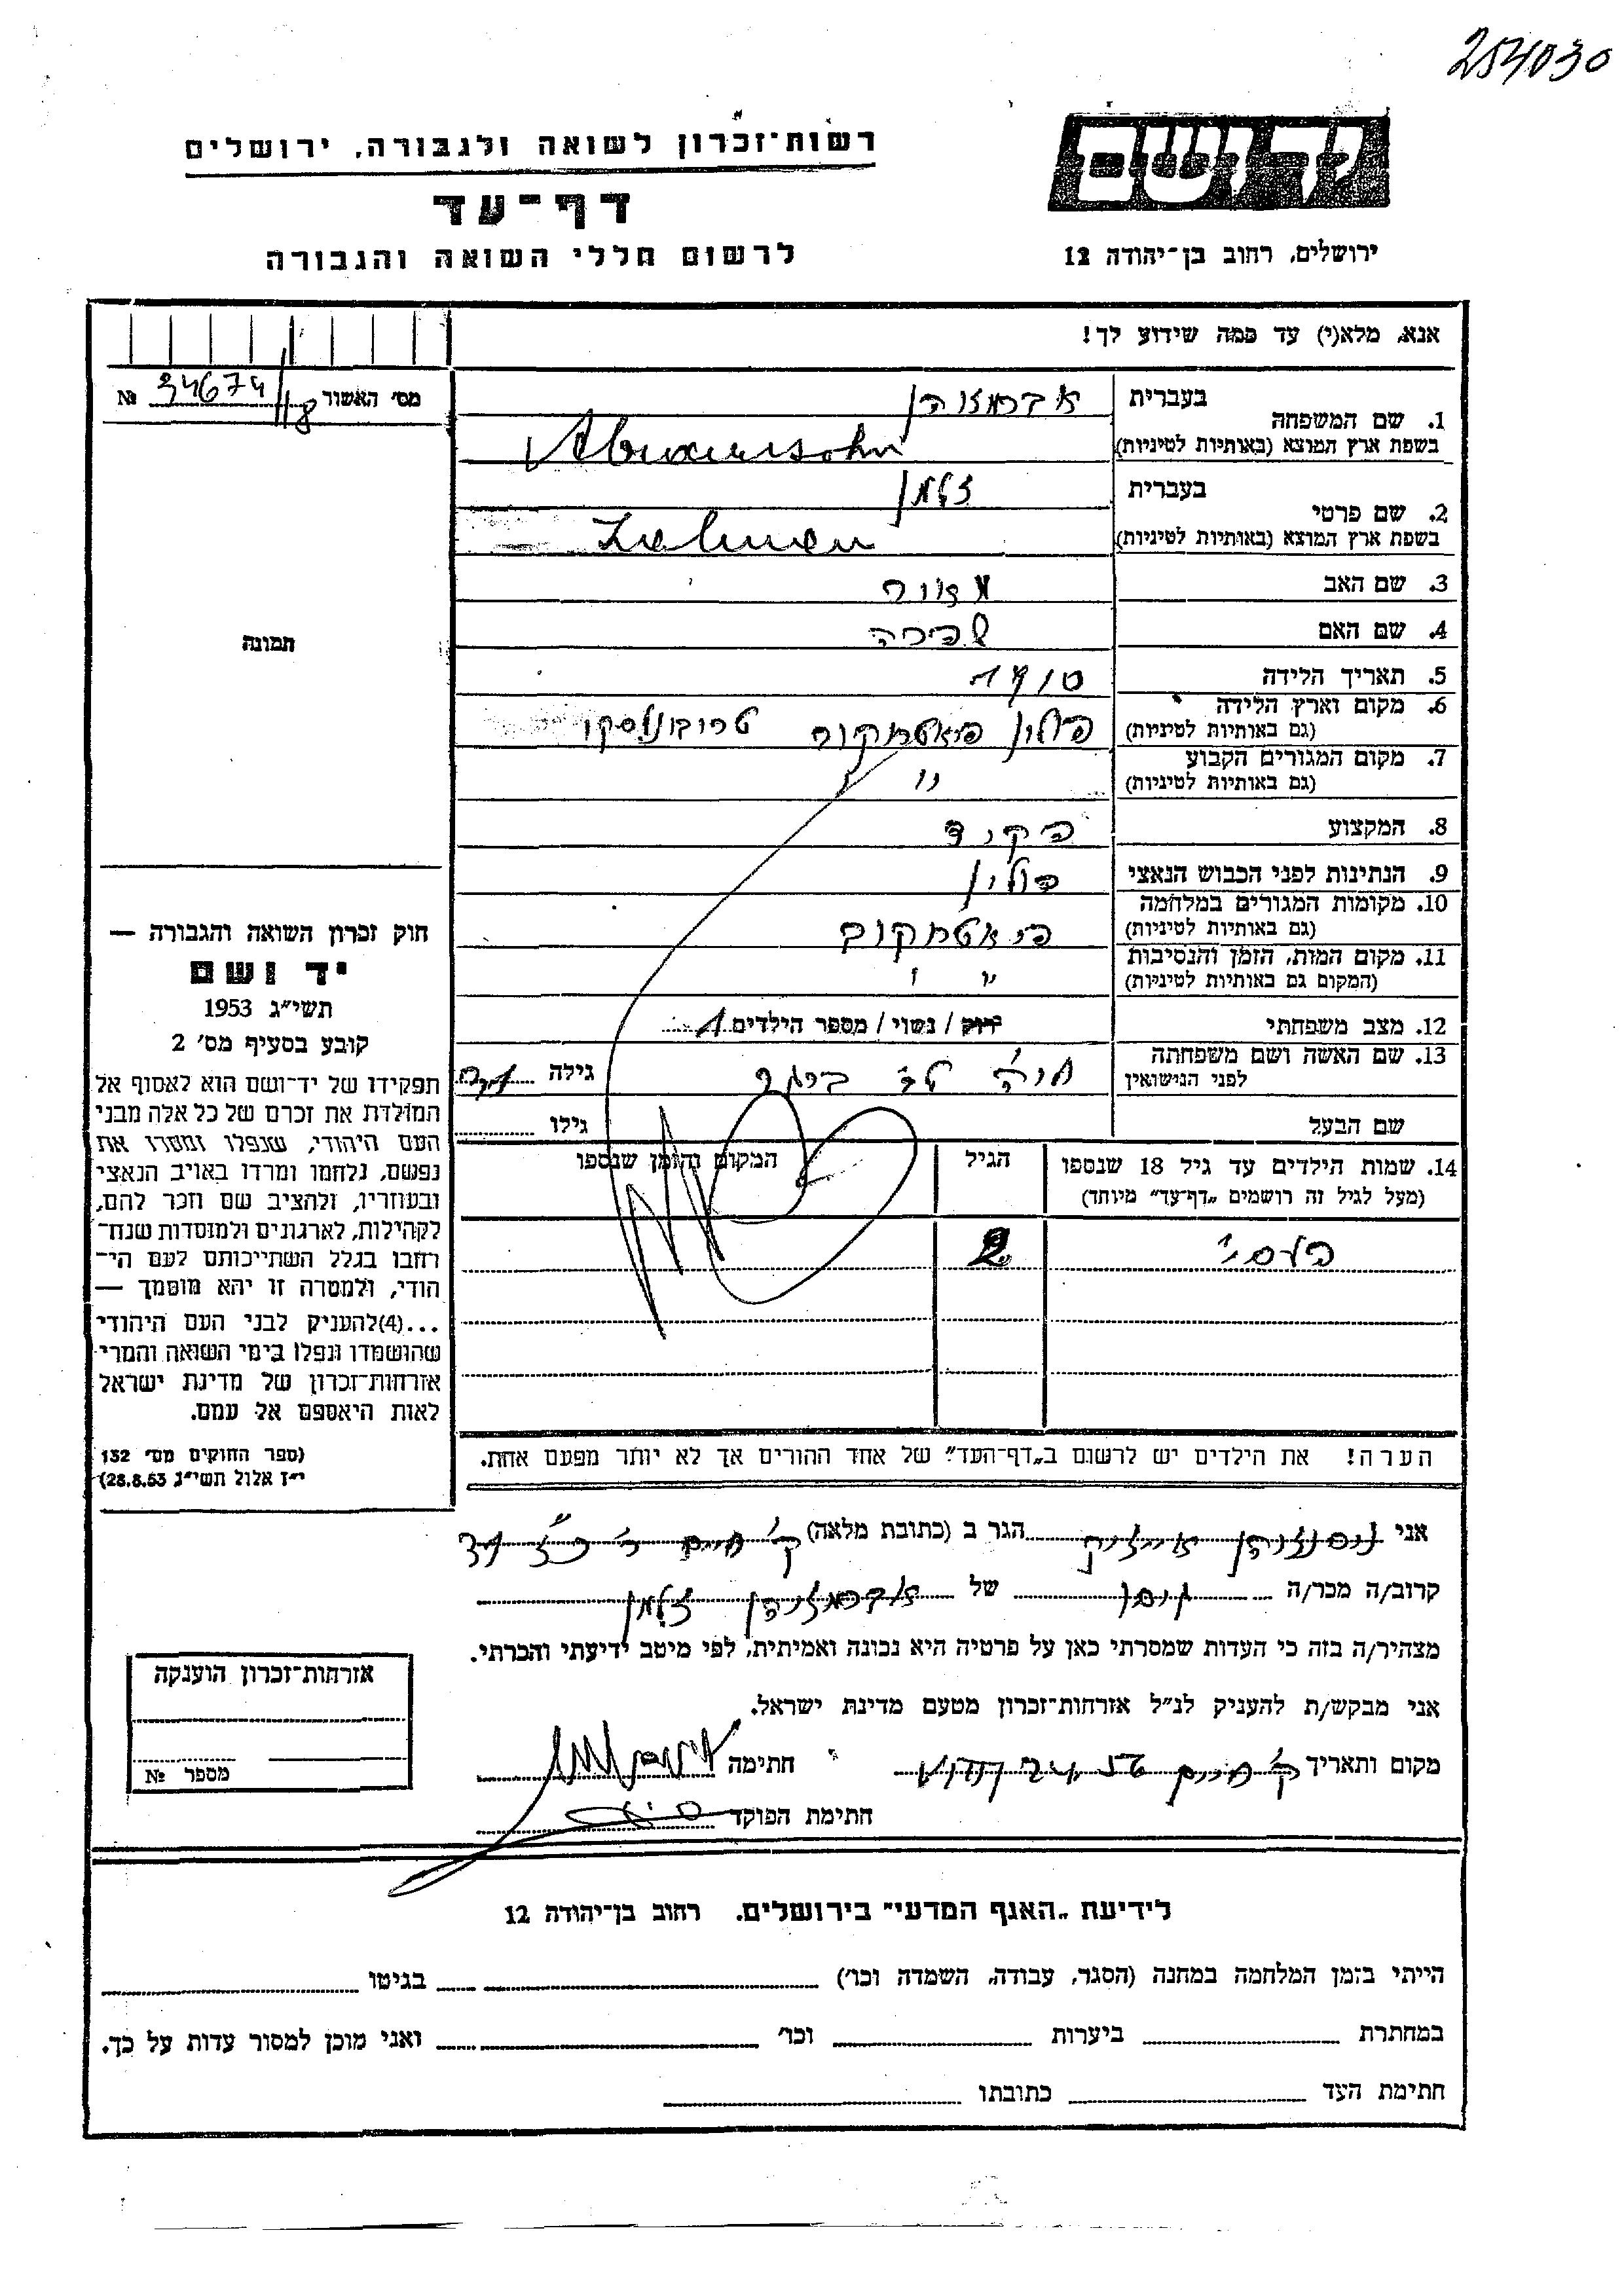 254030
יד ושם
רשות־זכרון לשואה ולגבורה, ירושלים
דף־עד
לרשום חללי השואה והגבורה
ירושלים, רחוב בן־יהודה 12
אנא, מלא(י) עד כמה שידוע לך!
מס׳ האשור 34674/118 №
1. שם המשפחה
בעברית אברמזוהן
בשפת ארץ המוצא (באותיות לטיניות) Abramersohn
2. שם פרטי
בעברית זלמן
בשפת ארץ המוצא (באותיות לטיניות) Zalman
3. שם האב
4. שם האם שפרה
5. תאריך הלידה 1910
6. מקום וארץ הלידה
(גם באותיות לטיניות) פולין פיאטרקוב טריבונלסקי
7. מקום המגורים הקבוע
(גם באותיות לטיניות) " "
8. המקצוע פקיד
9. הנתינות לפני הכבוש הנאצי פולין
10. מקומות המגורים במלחמה
(גם באותיות לטיניות) פיאטרקוב
11. מקום המות, הזמן והנסיבות
(המקום גם באותיות לטיניות) " "
12. מצב משפחתי רווק / נשוי / מספר הילדים 1
13. שם האשה ושם משפחתה
לפני הנישואין חיה גילה
שם הבעל גילו
14. שמות הילדים עד גיל 18 שנספו
(מעל לגיל זה רושמים „דף־עד״ מיוחד)
הגיל
המקום והזמן שנספו
2
הערה! את הילדים יש לרשום ב„דף־העד״ של אחד ההורים אך לא יותר מפעם אחת.
תמונה
חוק זכרון השואה והגבורה —
יד ושם
תשי״ג 1953
קובע בסעיף מס׳ 2
תפקידו של יד־ושם הוא לאסוף אל
המולדת את זכרם של כל אלה מבני
העם היהודי, שנפלו ומסרו את
נפשם, נלחמו ומרדו באויב הנאצי
ובעוזריו, ולהציב שם וזכר להם,
לקהילות, לארגונים ולמוסדות שנח־
רבו בגלל השתייכותם לעם הי־
הודי, ולמטרה זו יהא מוסמך —
...(4)להעניק לבני העם היהודי
שהושמדו ונפלו בימי השואה והמרי
אזרחות־זכרון של מדינת ישראל
לאות היאספם אל עמם.
(ספר החוקים מס׳ 132
י״ז אלול תשי״ג 28.8.53)
אני הגר ב (כתובת מלאה)
קרוב/ה מכר/ה של אברמזוהן זלמן
מצהיר/ה בזה כי העדות שמסרתי כאן על פרטיה היא נכונה ואמיתית, לפי מיטב ידיעתי והכרתי.
אני מבקש/ת להעניק לנ״ל אזרחות־זכרון מטעם מדינת ישראל.
מקום ותאריך ק׳ חיים חתימה
חתימת הפוקד
אזרחות־זכרון הוענקה
מספר №
לידיעת „האגף המדעי״ בירושלים. רחוב בן־יהודה 12
הייתי בזמן המלחמה במחנה (הסגר, עבודה, השמדה וכו׳) בגיטו
במחתרת ביערות וכו׳ ואני מוכן למסור עדות על כך.
חתימת העד כתובתו